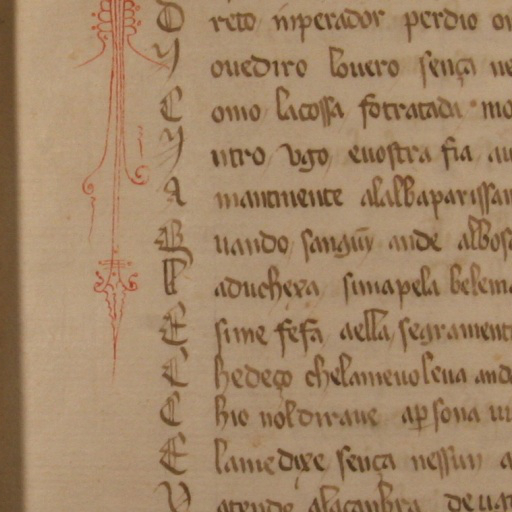 D reto inperador perdio
Y ouediro louero sença
C omo lacossa fotratada
Y ntro vgo euostra fia
A mantinente alalbaparissan
Q uando sanguin ande albos
L aduchexa simapela belem
E sime fefa aella segrament
C hedeço chelameuoleua and
C hio uoldiraue apsona
E lamedixe sença nessun
V atende alaçanbra deuat